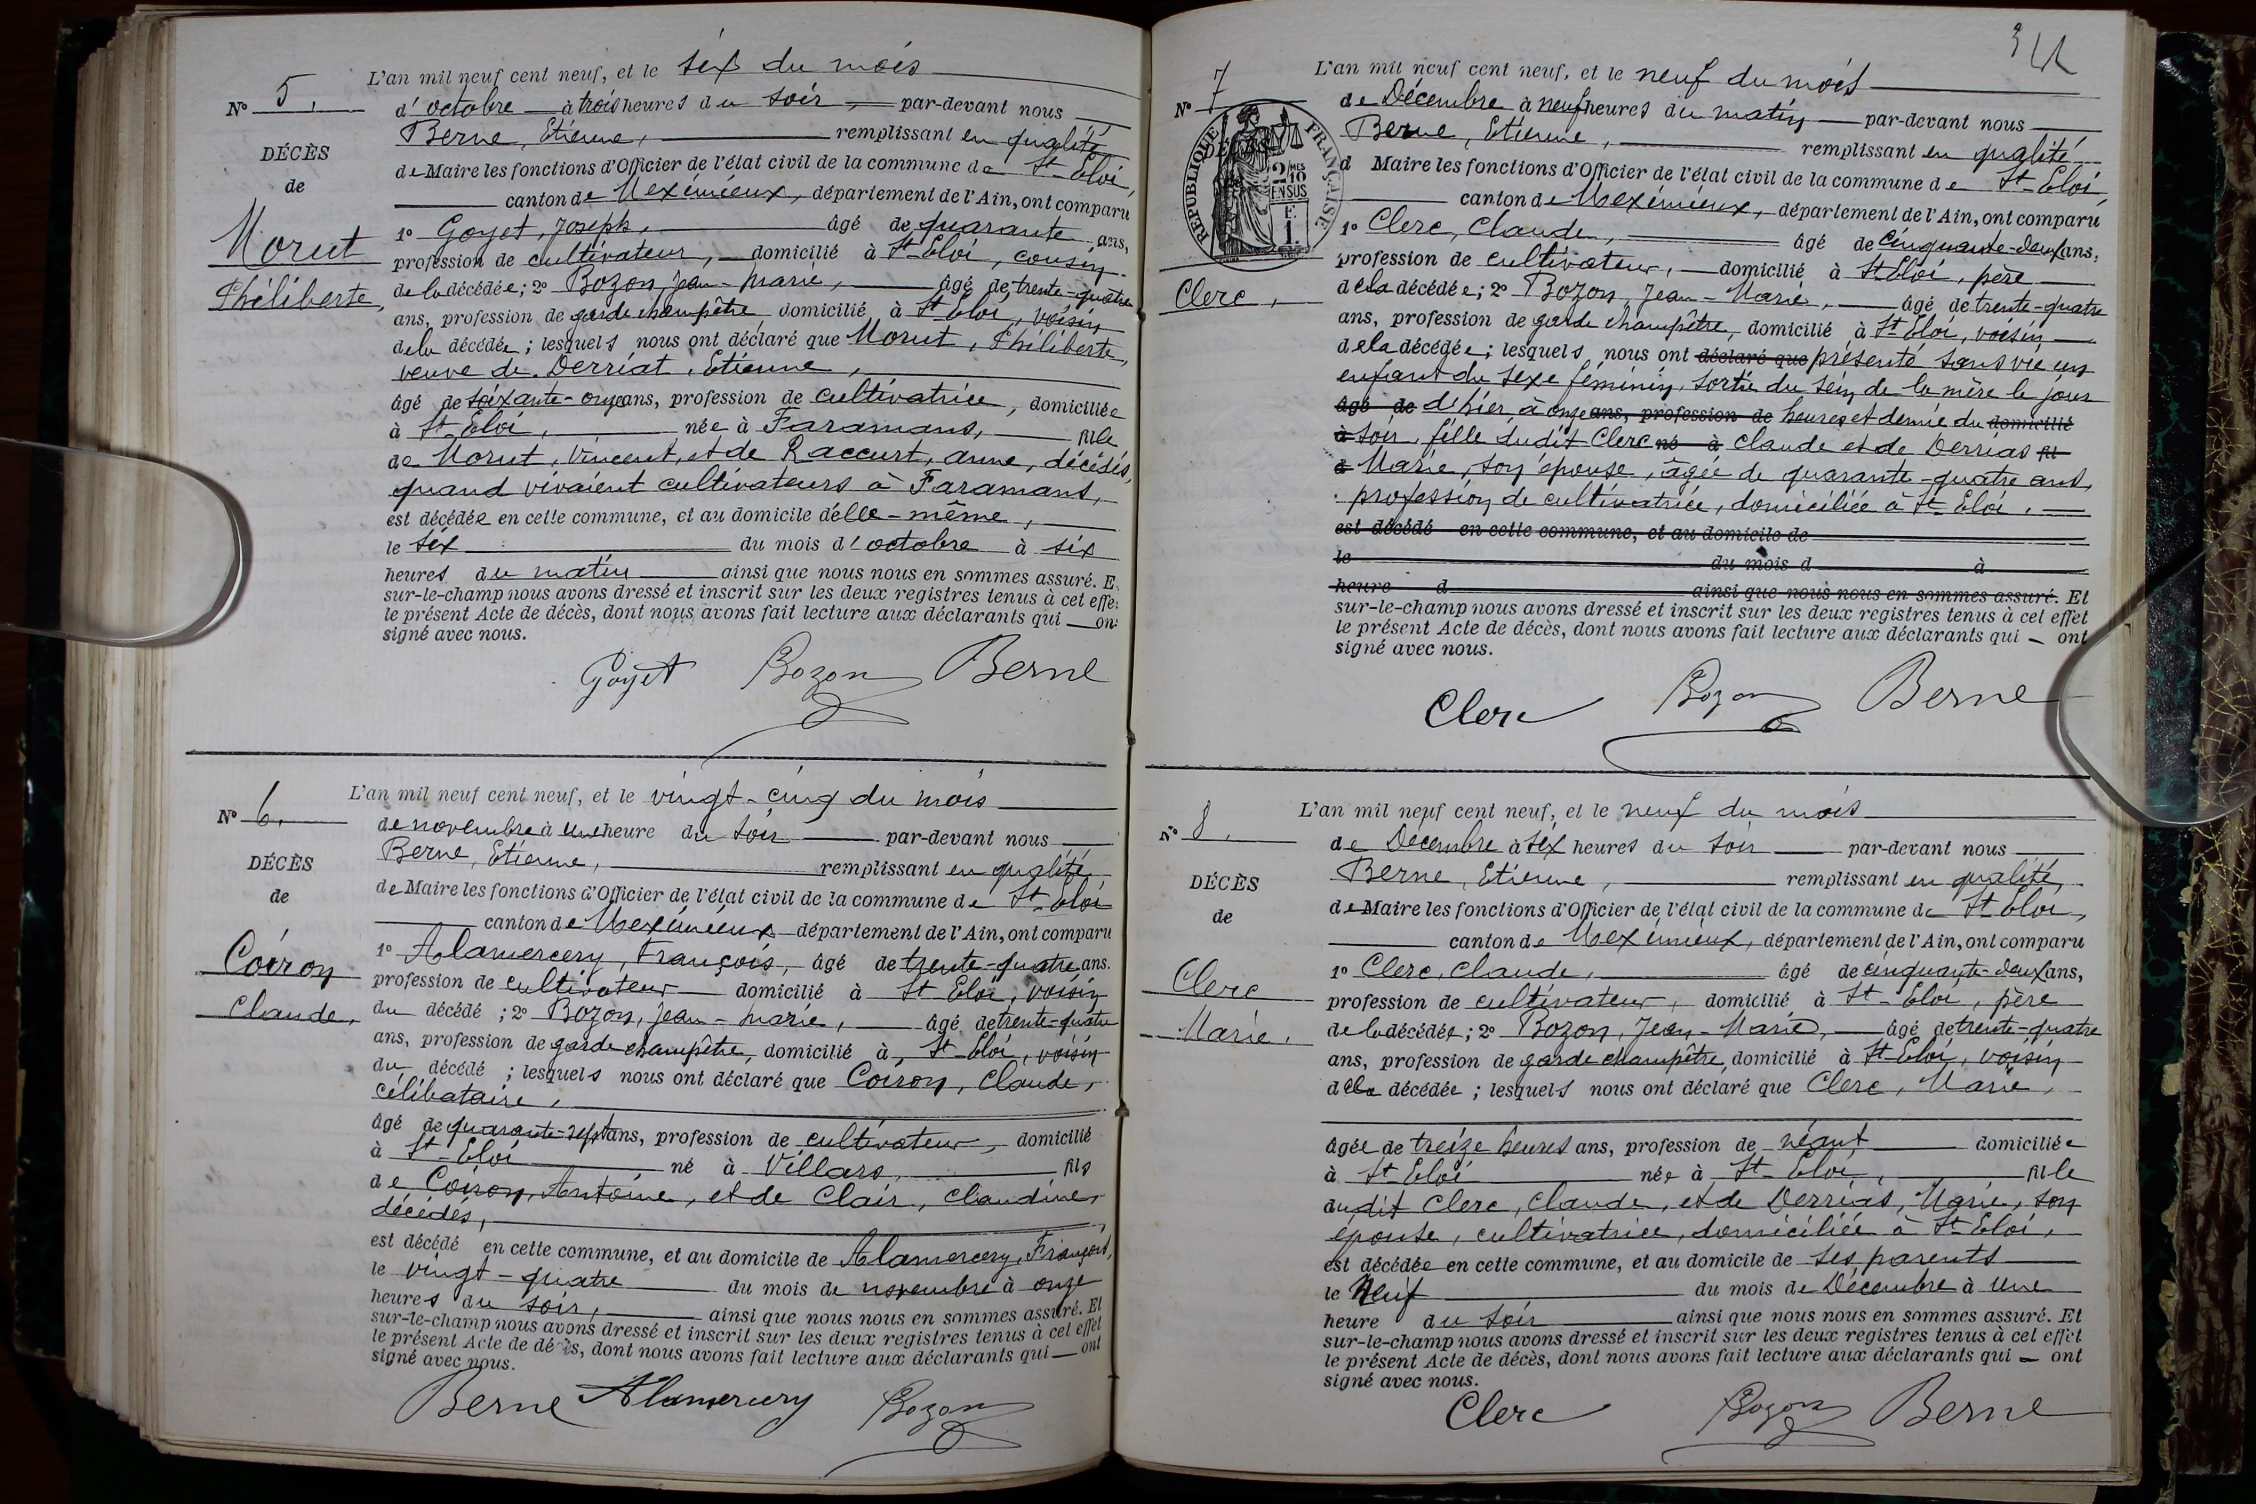 L'an mil neuf cent neuf, et le six du mois
N° 5.
d'octobre à trois heures du soir, par-devant nous
Berne, Etienne, remplissant en qualité
DÉCÈS
de Maire les fonctions d'Officier de l'état civil de la commune de St-Eloi,
de
canton de Meximieux, département de l'Ain, ont comparu
Morut
1° Goyet, Joseph, âgé de quarante ans,
profession de cultivateur, domicilié à St-Eloi, cousin
Philiberte,
de la décédée; 2° Bozon, Jean-Marie, âgé de trente-quatre
ans, profession de garde champêtre domicilié à St-Eloi, voisin
de la décédée; lesquels nous ont déclaré que Morut, Philiberte,
veuve de Derriat, Etienne,
âgé de soixante-onze ans, profession de cultivatrice, domiciliée
à St-Eloi, née à Faramans, fille
de Morut, Vincent, et de Raccurt, Anne, décédés,
quand vivaient cultivateurs à Faramans,
est décédée en cette commune, et au domicile d'elle-même,
le six du mois d'octobre à six
heures du matin ainsi que nous nous en sommes assuré. E
sur-le-champ nous avons dressé et inscrit sur les deux registres tenus à cet effe
le présent Acte de décès, dont nous avons fait lecture aux déclarants qui on
signé avec nous.
Goyet Bozon Berne
L'an mil neuf cent neuf, et le vingt-cinq du mois
N° 6.
de novembre à une heure du soir par-devant nous
Berne, Etienne, remplissant en qualité
DÉCÈS
de Maire les fonctions d'Officier de l'état civil de la commune de St-Eloi
de
canton de Meximieux département de l'Ain, ont comparu
Coiron
1° Alamercery, François, âgé de trente-quatre ans.
profession de cultivateur domicilié à St Eloi, voisin
Claude,
du décédé; 2° Bozon, Jean-Marie, âgé de trente-quatre
ans, profession de garde champêtre, domicilié à St-Eloi, voisin
du décédé; lesquels nous ont déclaré que Coiron, Claude,
célibataire,
âgé de quarante-sept ans, profession de cultivateur, domicilié
à St-Eloi né à Villars, fils
de Coiron, Antoine, et de Clair, Claudine,
décédés,
est décédé en cette commune, et au domicile de Alamercery, François,
le vingt-quatre du mois de novembre à onze
heures du soir, ainsi que nous nous en sommes assuré. Et
sur-le-champ nous avons dressé et inscrit sur les deux registres tenus à cet effet
le présent Acte de décès, dont nous avons fait lecture aux déclarants qui ont
signé avec nous.
Berne Alamercery Bozon
L'an mil neuf cent neuf, et le neuf du mois
N° 7
de Décembre à neuf heures du matin par-devant nous
Berne, Etienne, remplissant en qualité
RÉPUBLIQUE FRANÇAISE
2/10 EN SUS
d Maire les fonctions d'Officier de l'état civil de la commune de St-Eloi,
canton de Meximieux, département de l'Ain, ont comparu
1° Clerc, Claude, âgé de cinquante-deux ans,
profession de cultivateur, domicilié à St Eloi, père
Clerc,
de la décédée; 2° Bozon, Jean-Marie, âgé de trente-quatre
ans, profession de garde champêtre, domicilié à St-Eloi, voisin
de la décédée; lesquels nous ont déclaré que présenté sans vie un
enfant du sexe féminin, sortie du sein de la mère le jour
âgé de d'hier, à onze ans, profession de heures et demie du domicilié
à soir, fille dudit Clerc né à Claude et de Derrias fil
d Marie, son épouse, âgée de quarante-quatre ans,
profession de cultivatrice, domiciliée à St-Eloi.
est décédé en cette commune, et au domicile de
le du mois d à
heure d ainsi que nous nous en sommes assuré. Et
sur-le-champ nous avons dressé et inscrit sur les deux registres tenus à cet effet
le présent Acte de décès, dont nous avons fait lecture aux déclarants qui ont
signé avec nous.
Clerc Bozon Berne
L'an mil neuf cent neuf, et le neuf du mois
N° 8.
de Décembre à six heures du soir par-devant nous
Berne, Etienne, remplissant en qualité,
DÉCÈS
de Maire les fonctions d'Officier de l'état civil de la commune de St-Eloi,
de
canton de Meximieux, département de l'Ain, ont comparu
Clerc
1° Clerc, Claude, âgé de cinquante-deux ans,
profession de cultivateur, domicilié à St-Eloi, père
Marie.
de la décédée; 2° Bozon, Jean-Marie, âgé de trente-quatre
ans, profession de garde champêtre, domicilié à St-Eloi, voisin
de la décédée; lesquels nous ont déclaré que Clerc, Marie,
âgée de treize heures ans, profession de néant domiciliée
à St-Eloi née à St-Eloi, fille
dudit Clerc, Claude, et de Derrias, Marie, son
épouse, cultivatrice, domiciliée à St-Eloi,
est décédée en cette commune, et au domicile de ses parents
le Neuf du mois de Décembre à une
heure du soir ainsi que nous nous en sommes assuré. Et
sur-le-champ nous avons dressé et inscrit sur les deux registres tenus à cet effet
le présent Acte de décès, dont nous avons fait lecture aux déclarants qui ont
signé avec nous.
Clerc Bozon Berne